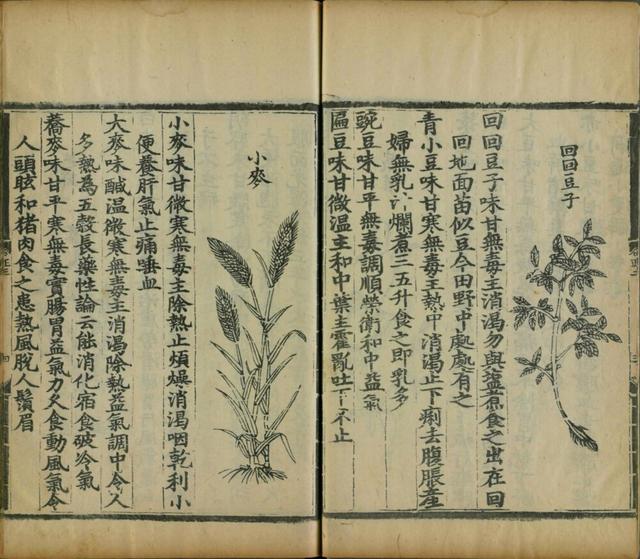 回回豆子
回回豆子味甘無毒主消渴勿與鹽煮食之出在回
回地面苗似豆今田野中處處有之
青小豆味甘寒無毒主熱中消渴止下痢去腹脹產
婦無乳汁爛煮三五升食之即乳多
豌豆味甘平無毒調順榮衛和中益氣
匾豆味甘微溫主和中葉主霍亂吐下不止
小麥
小麥味甘微寒無毒主除熱止煩燥消渴咽乾利小
便養肝氣止痛唾血
大麥味醎溫微寒無毒主消渴除熱益氣調中令人
多熱為五穀長藥性論云能消化宿食破冷氣
蕎麥味甘平寒無毒實腸胃益氣力久食動風氣令
人頭眩和猪肉食之患熱風脫人鬚眉